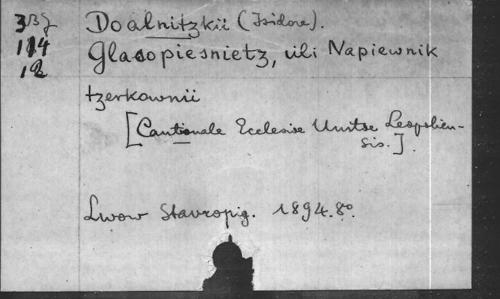 3BJ Doalnitzkii (Isidore).
114 Glasopiesnietz, ili Napiewnik
12
tzerkownii
[Cantionale Ecclesise Unitse Leopolien-
sis.]
Lwow Stavropig. 1894. 8º.